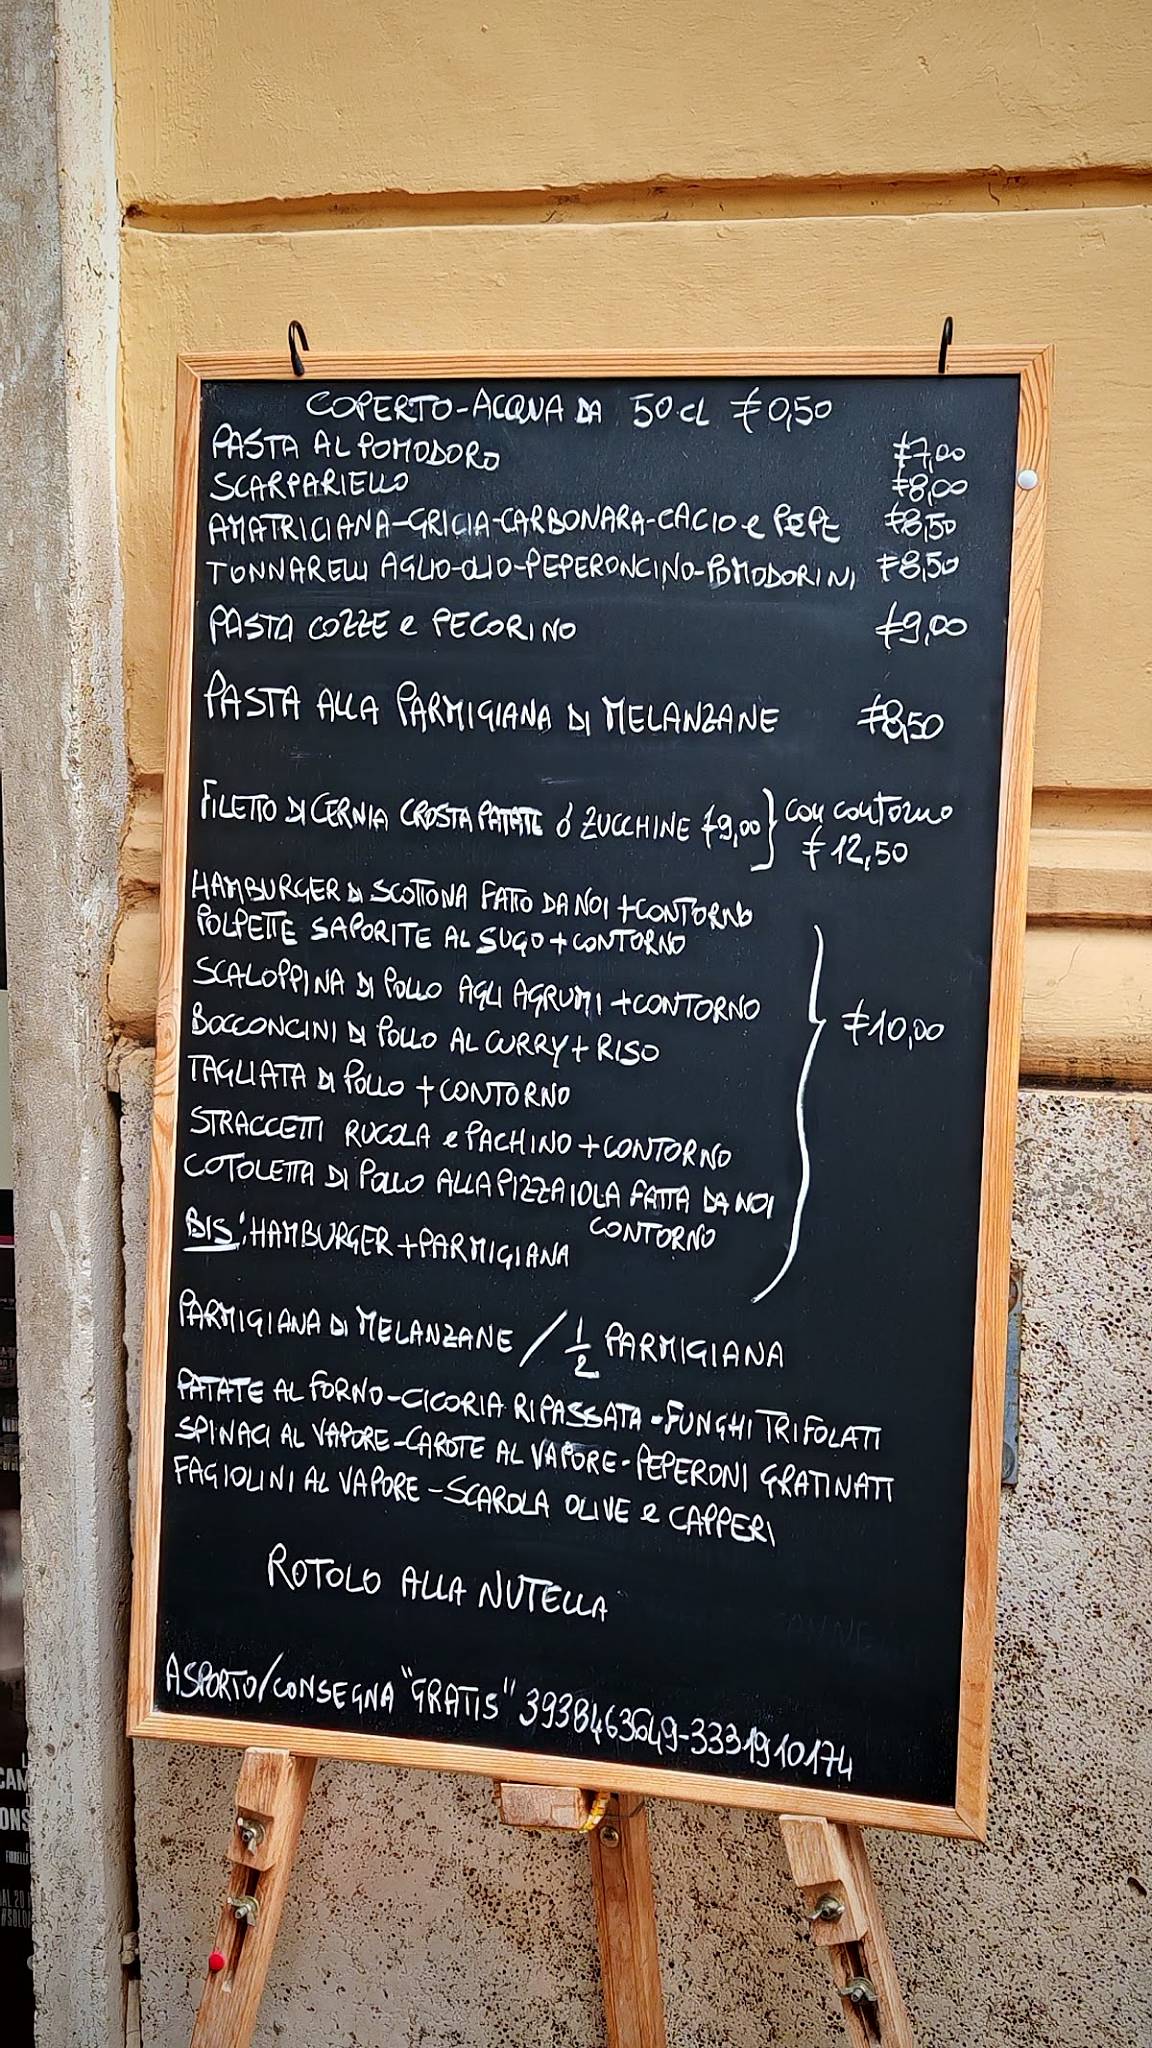 COPERTO-ACQUA DA 50 cl €0,50
PASTA AL POMODORO €7,00
SCARPARIELLO €8,00
AMATRICIANA-GRICIA-CARBONARA-CACIO e PEPE €8,50
TONNARELLI AGLIO-OLIO-PEPERONCINO-POMODORINI €8,50
PASTA COZZE e PECORINO €9,00
PASTA ALLA PARMIGIANA DI MELANZANE €8,50
FILETTO DI CERNIA CROSTA PATATE ó ZUCCHINE €9,00 } con contorno
€12,50
HAMBURGER DI SCOTTONA FATTO DA NOI + CONTORNO
POLPETTE SAPORITE AL SUGO + CONTORNO
SCALOPPINA DI POLLO AGLI AGRUMI + CONTORNO
BOCCONCINI DI POLLO AL CURRY + RISO €10,00
TAGLIATA DI POLLO + CONTORNO
STRACCETTI RUCOLA e PACHINO + CONTORNO
COTOLETTA DI POLLO ALLA PIZZAIOLA FATTA DA NOI
CONTORNO
BIS: HAMBURGER + PARMIGIANA
PARMIGIANA DI MELANZANE / 1/2 PARMIGIANA
PATATE AL FORNO-CICORIA RIPASSATA-FUNGHI TRIFOLATI
SPINACI AL VAPORE-CAROTE AL VAPORE-PEPERONI GRATINATI
FAGIOLINI AL VAPORE-SCAROLA OLIVE e CAPPERI
ROTOLO ALLA NUTELLA
ASPORTO/CONSEGNA "GRATIS" 3938463649-3331910174